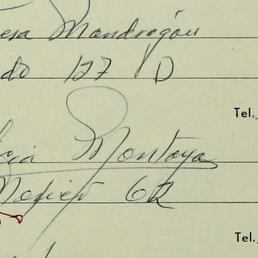 esa Mandragón
do 127 D
Tel.
icia Montoya
62
Tel.